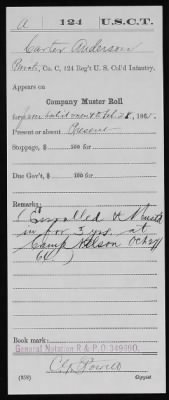 a 124 U.S.C.T.
Carter Anderson
Co. C, 124 Reg't U. S. Col'd Infantry.
Appears on
Company Muster Roll
for from enlistment to Feb 28, 1865.
Present or absent Present
Stoppage, $ 100 for
Due Gov't, $ 100 for
Remarks:
Enrolled & Must
in for 3 yrs. at
Camp Nelson Oct 27
64
Book mark:
General Notation R & P. O
(358) Copyist